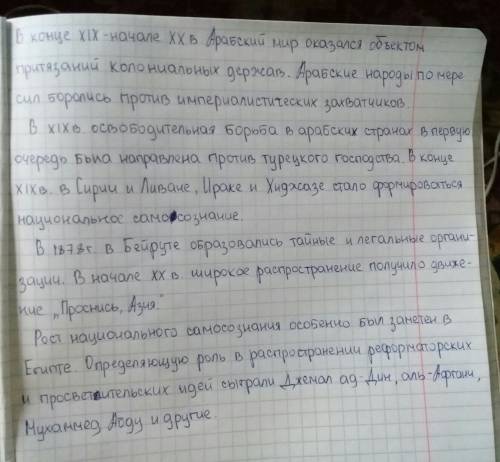 В конце XIX-начале XX в Арабский мир оказался объектом
притязаний колониальных держав. Арабские народы по мере
сил боролись против империалистических захватчиков.
В XIX в. освободительная борьба в арабских странах в первую
очередь была направлена против турецкого господства. В конце
XIX в. в Сирии и Ливане, Ираке и Хиджазе стало формироваться
национальное самосознание.
В 1878г. в Бейруте образовались тайные и легальные органи-
зации. В начале XX в. широкое распространение получило движе-
ние „Проснись, Азия."
Рост национального самосознания особенно был заметен в
Египте. Определяющую роль в распространении реформаторских
и просветительских идей сыграли Джемал ад-Дин, аль-Афгани,
Мухаммед Абду и другие.